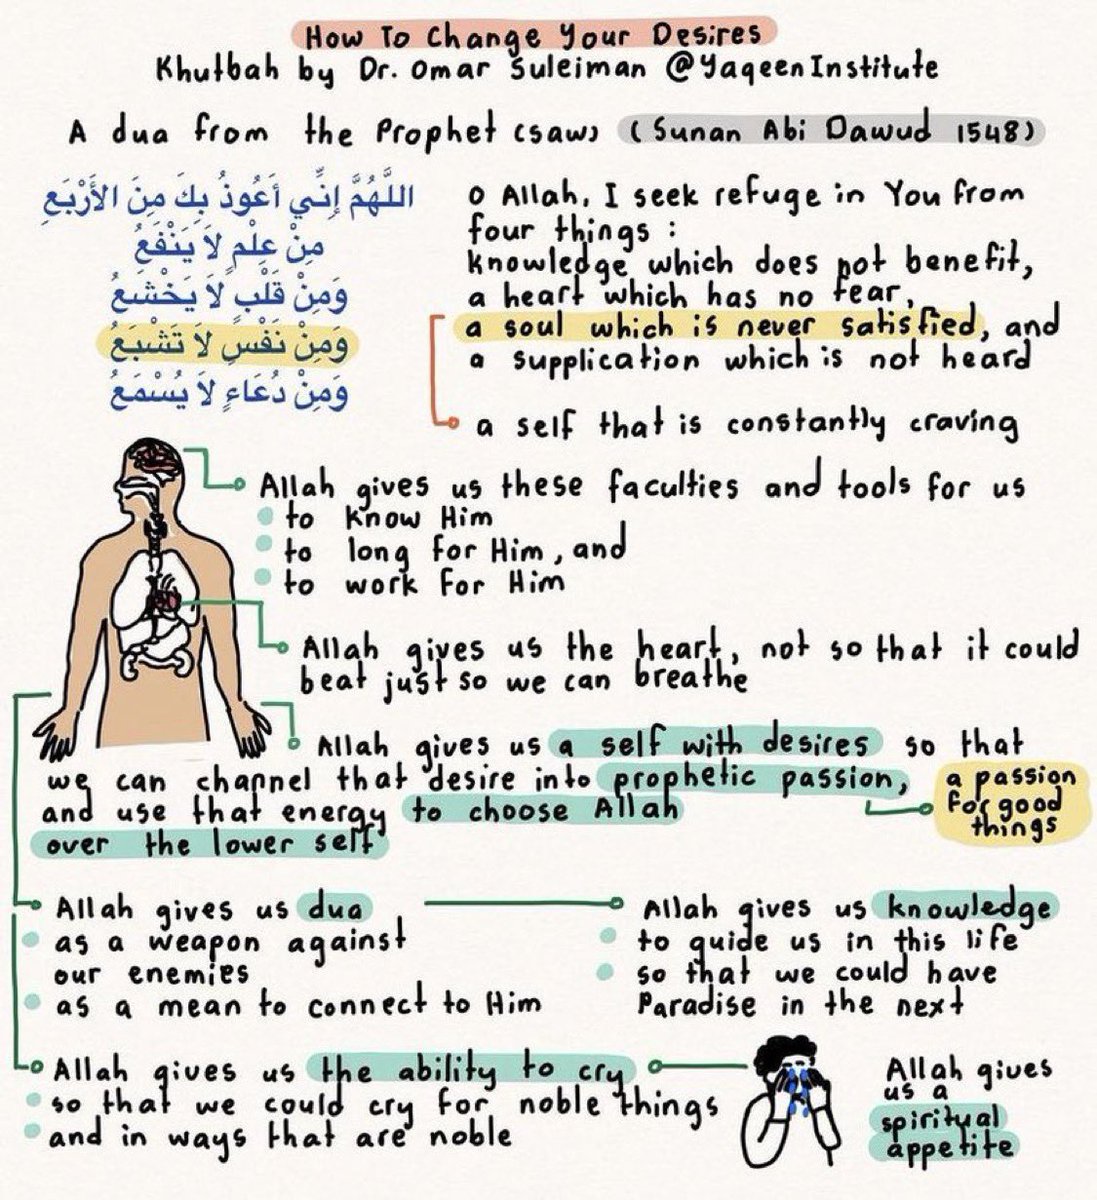 How To Change Your Desires
Khutbah by Dr. Omar Suleiman @YaqeenInstitute
A dua from the Prophet (saw) (Sunan Abi Dawud 1548)
اللَّهُمَّ إِنِّي أَعُوذُ بِكَ مِنَ الأَرْبَعِ
مِنْ عِلْمٍ لاَ يَنْفَعُ
وَمِنْ قَلْبٍ لاَ يَخْشَعُ
وَمِنْ نَفْسٍ لاَ تَشْبَعُ
وَمِنْ دُعَاءٍ لاَ يُسْمَعُ
O Allah, I seek refuge in You from
four things :
knowledge which does not benefit,
a heart which has no fear,
a soul which is never satisfied, and
a supplication which is not heard
a self that is constantly craving
Allah gives us these faculties and tools for us
to know Him
to long for Him, and
to work for Him
Allah gives us the heart, not so that it could
beat just so we can breathe
Allah gives us a self with desires so that
we can channel that desire into prophetic passion,
and use that energy to choose Allah
over the lower self
a passion
for good
things
Allah gives us dua
as a weapon against
our enemies
as a mean to connect to Him
Allah gives us knowledge
to guide us in this life
so that we could have
Paradise in the next
Allah gives us the ability to cry
so that we could cry for noble things
and in ways that are noble
Allah gives
us a
spiritual
appetite